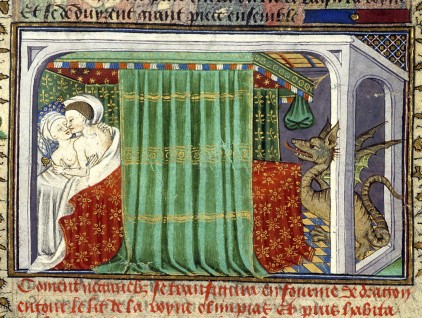 Et se deduirent grant piece ensemble
Coment se transfigura en fourme de dragon
entour le lit de la royne olimpias Et puis habita